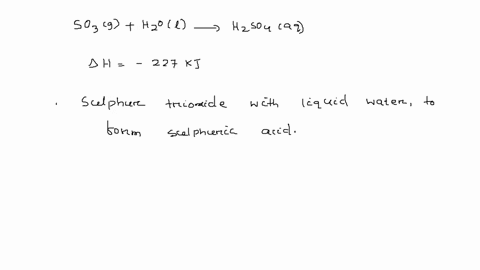 SO₃(g) + H₂O(l) ⟶ H₂SO₄(aq)
ΔH = - 227 KJ
. Sulphur trioxide with liquid water, to
form sulphuric acid.